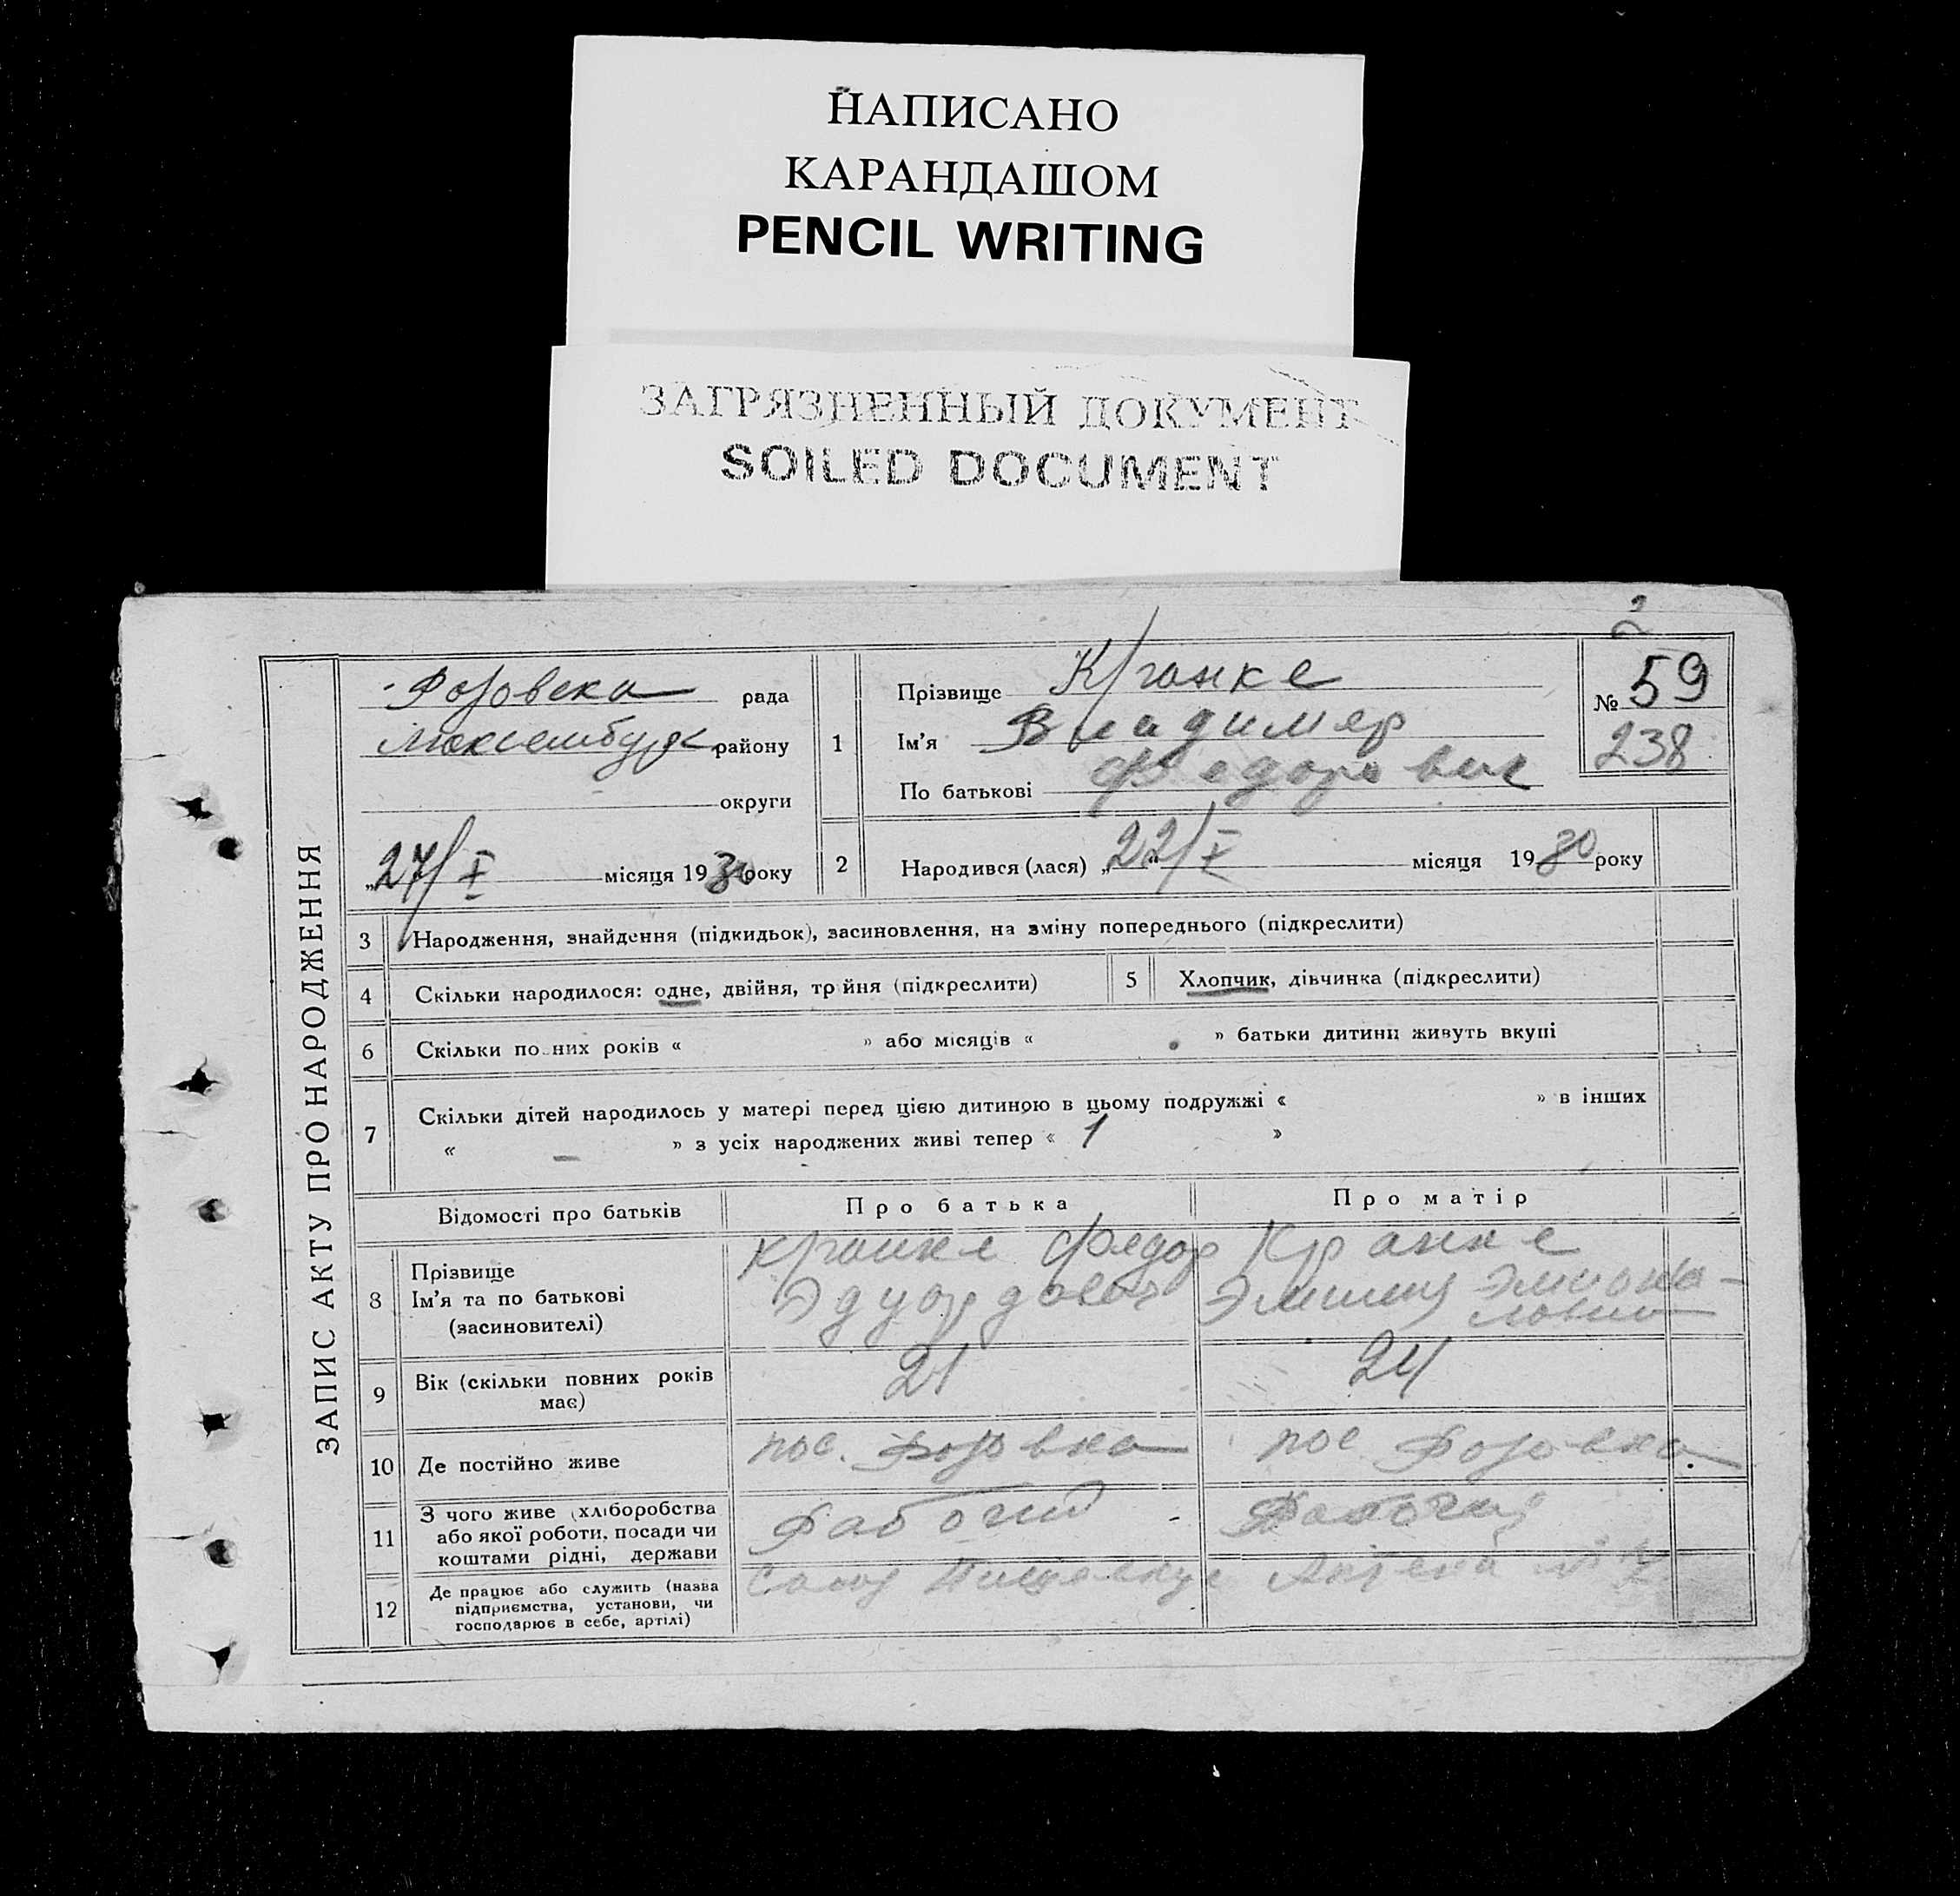 НАПИСАНО
КАРАНДАШОМ
PENCIL WRITING
ЗАГРЯЗНЕННЫЙ ДОКУМЕНТ
SOILED DOCUMENT
2
ЗАПИС АКТУ ПРО НАРОДЖЕННЯ
рада
Люксембург району
округи
„27/X місяця 1930 року
1
Прізвище Кранке
Ім'я Владимер
По батькові Федорович
№ 59
238
2 Народився (лася) „22/X місяця 1930 року
3 Народження, знайдення (підкидьок), засиновлення, на зміну попереднього (підкреслити)
4 Скільки народилося: одне, двійня, трійня (підкреслити)
5 Хлопчик, дівчинка (підкреслити)
6 Скільки повних років « » або місяців « » батьки дитини живуть вкупі
7 Скільки дітей народилось у матері перед цією дитиною в цьому подружжі « » в інших
« — » з усіх народжених живі тепер « 1 »
Відомості про батьків Про батька Про матір
8 Прізвище
Ім'я та по батькові
(засиновителі)
Кранке Федор
Эдуардович
Кранке
9 Вік (скільки повних років
має)
21
24
10 Де постійно живе
пос.
пос
11 З чого живе (хліборобства
або якої роботи, посади чи
коштами рідні, держави
Рабочий
12 Де працює або служить (назва
підприємства, установи, чи
господарює в себе, артілі)